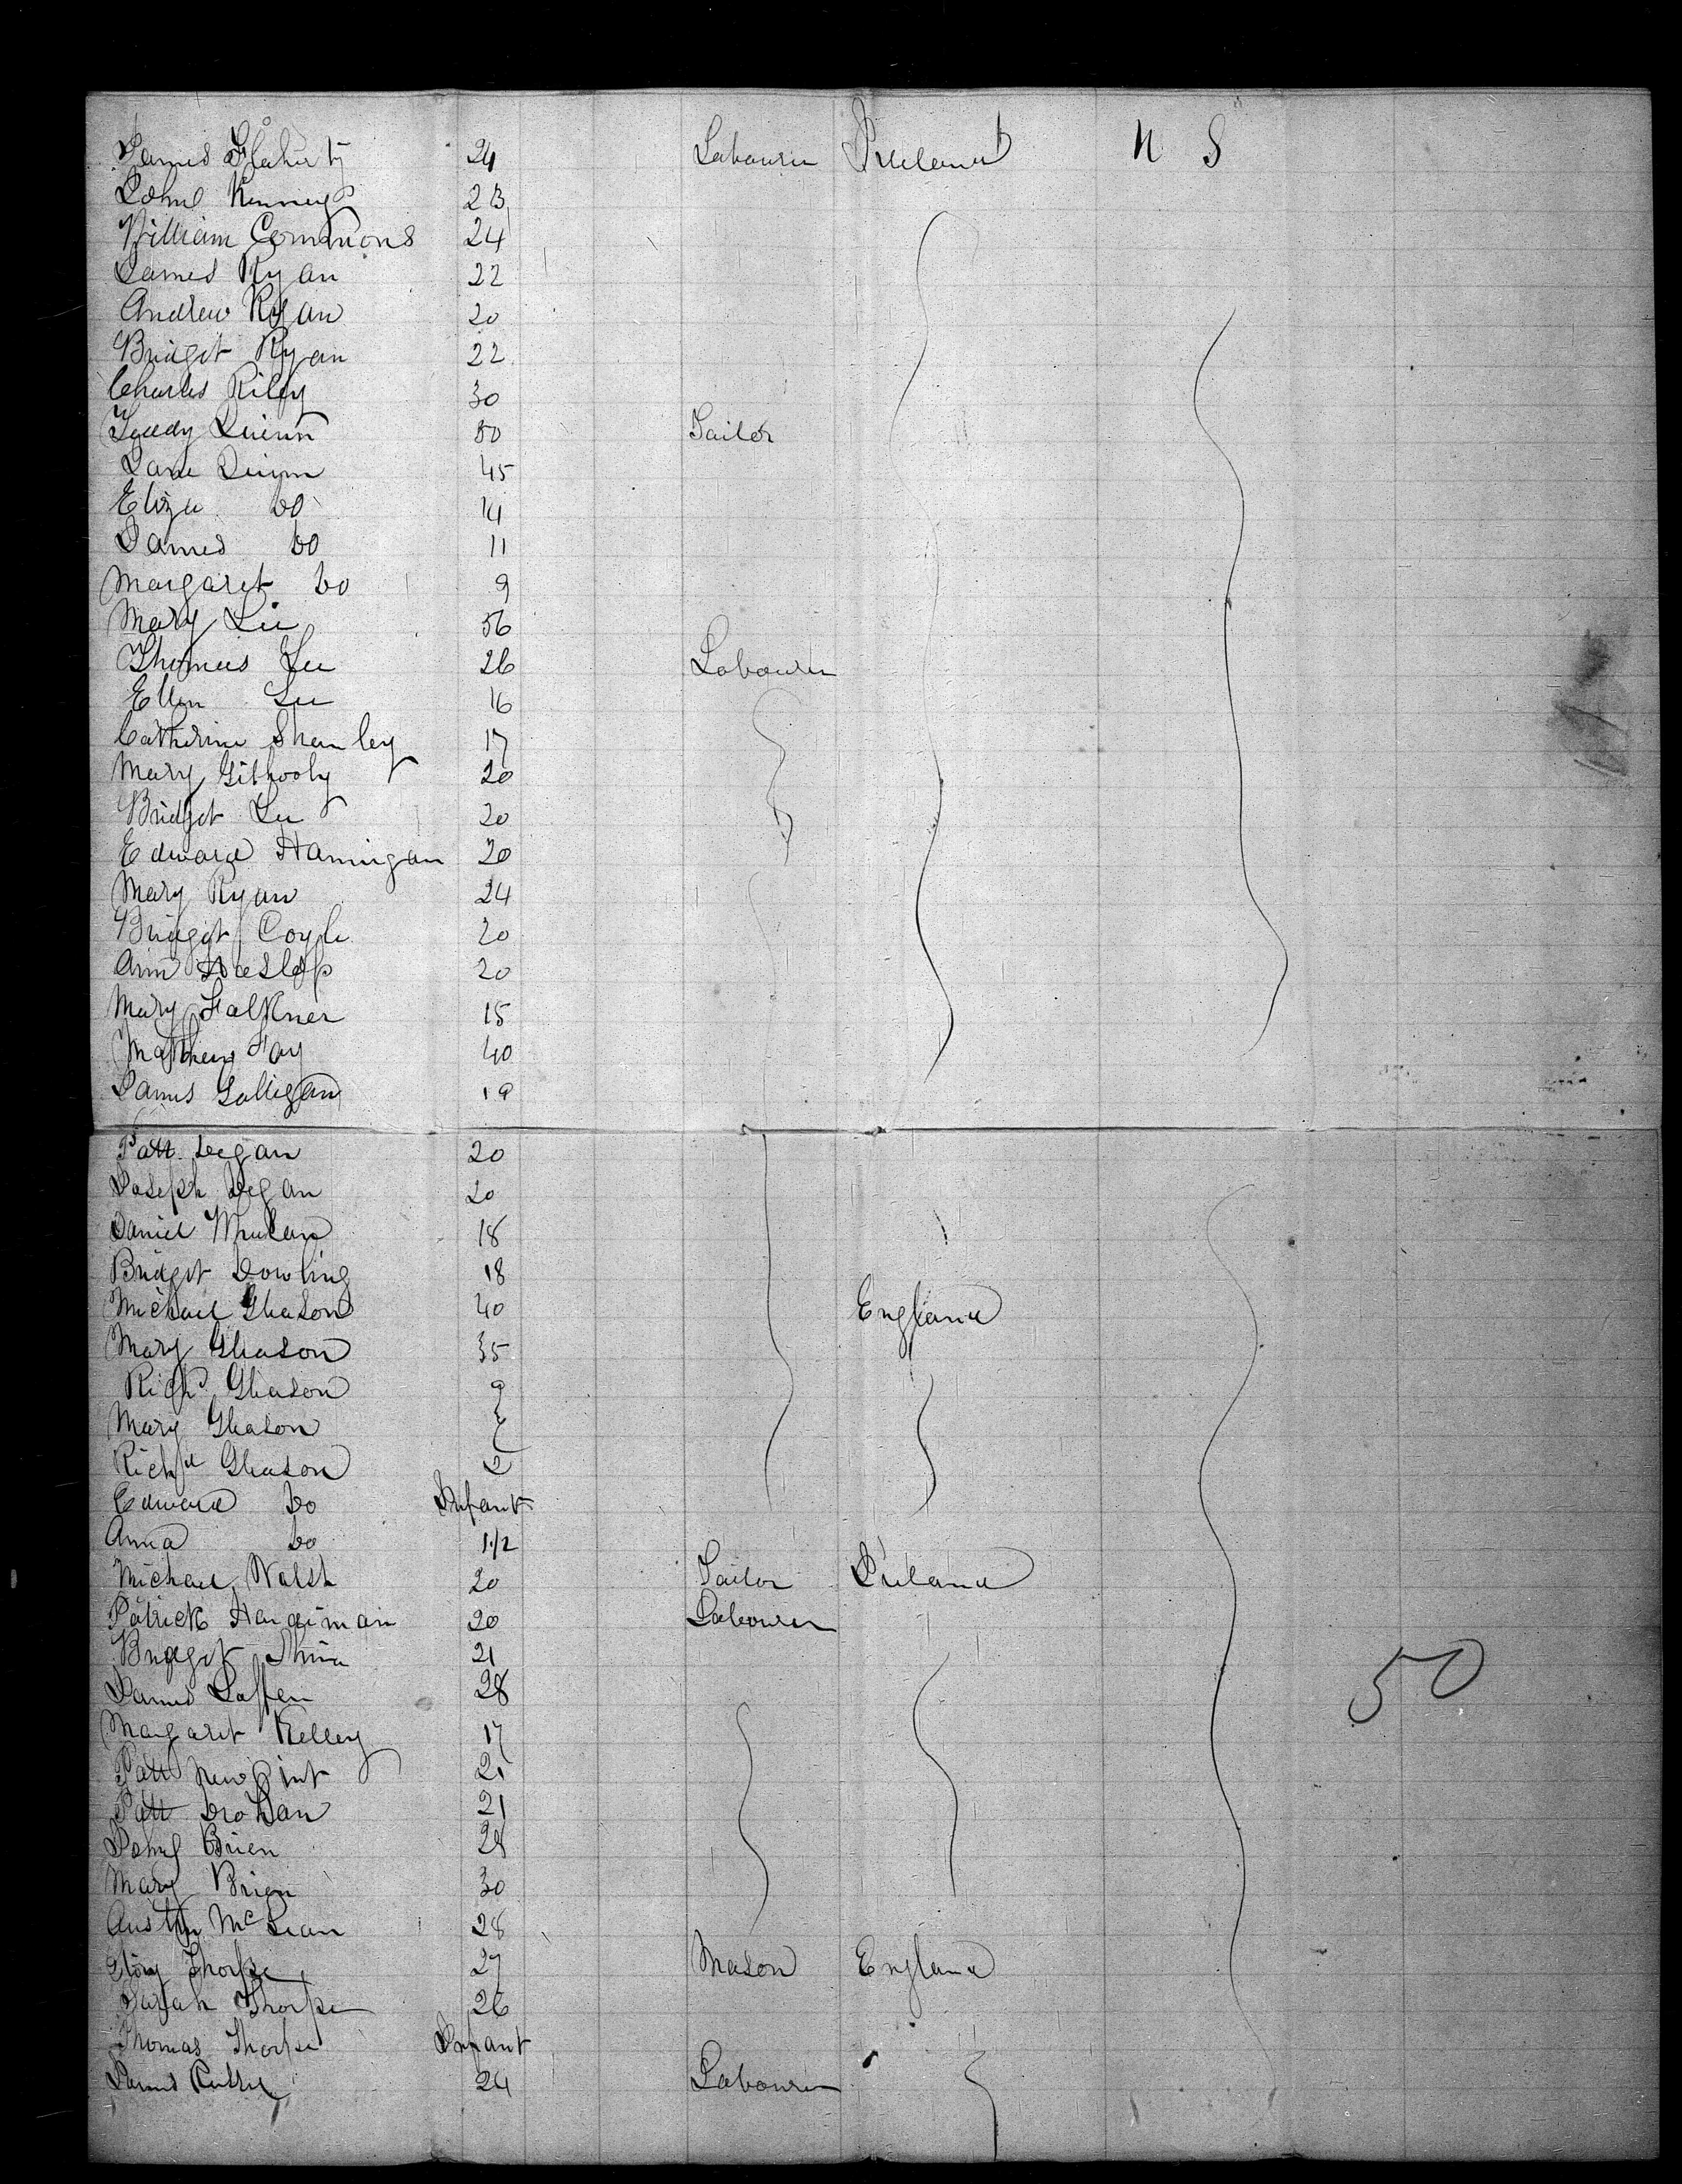 James Flaherty 24 Labourer Ireland U S
John Kenney 23
William Commons 24
James Ryan 22
Andrew Ryan 20
Bridget Ryan 22
Charles Riley 30
Quinn 50 Tailor
Jane Quinn 45
Eliza Do 14
James Do 11
Margaret Do 9
Mary Lee 56
Thomas Lee 26 Labourer
Ellen Lee 16
Catherine Shanley 17
Mary Gilhooly 20
Bridget Lee 20
Edward Hannigan 20
Mary Ryan 24
Bridget Coyle 20
Ann Haslop 20
Mary Falkner 15
Mathew Fay 40
James Galligan 19
Patt Degan 20
Joseph Degan 20
Daniel 18
Bridget Dowling 18
Michael Gleason 40 England
Mary Gleason 35
Richd Gleason 9
Mary Gleason
Richd Gleason 2
Edward Do Infant
Anna Do 1/2
Michael Walsh 20 Tailor Ireland
Patrick Hardiman 20 Labourer
Bridget 21
James Laffen 28
Margaret Kelley 17
Patt 21
Patt Drohan 21
John Brien 28
Mary Brien 30
Austin McLean 28
Thorpe 27 Mason England
Sarah Thorpe 26
Thomas Thorpe Infant
James 24 Labourer
50